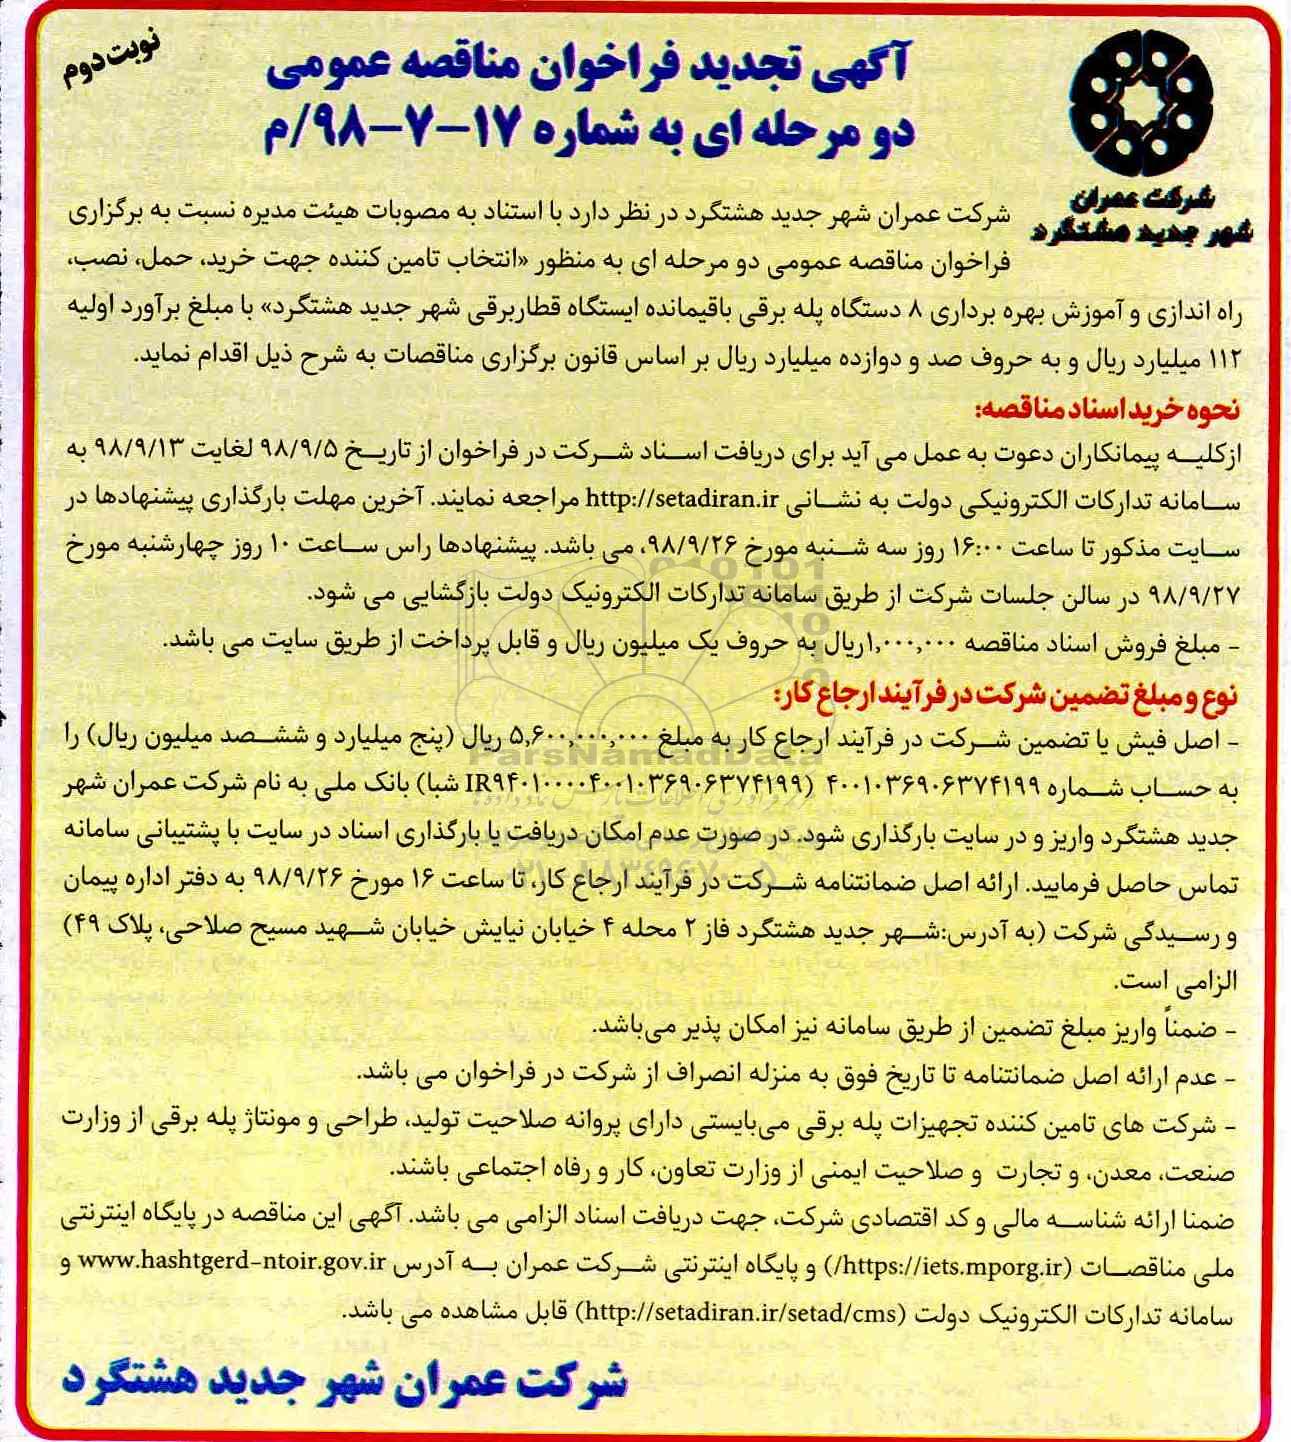 نوبت دوم
آگهی تجدید فراخوان مناقصه عمومی
دو مرحله ای به شماره ۱۷-۷-۹۸/م
شرکت عمران
شهر جدید هشتگرد
شرکت عمران شهر جدید هشتگرد در نظر دارد با استناد به مصوبات هیئت مدیره نسبت به برگزاری
فراخوان مناقصه عمومی دو مرحله ای به منظور «انتخاب تامین کننده جهت خرید، حمل، نصب،
راه اندازی و آموزش بهره برداری ۸ دستگاه پله برقی باقیمانده ایستگاه قطاربرقی شهر جدید هشتگرد» با مبلغ برآورد اولیه
۱۱۲ میلیارد ریال و به حروف صد و دوازده میلیارد ریال بر اساس قانون برگزاری مناقصات به شرح ذیل اقدام نماید.
نحوه خرید اسناد مناقصه:
ازکلیه پیمانکاران دعوت به عمل می آید برای دریافت اسناد شرکت در فراخوان از تاریخ ۹۸/۹/۵ لغایت ۹۸/۹/۱۳ به
سامانه تدارکات الکترونیکی دولت به نشانی http://setadiran.ir مراجعه نمایند. آخرین مهلت بارگذاری پیشنهادها در
سایت مذکور تا ساعت ۱۶:۰۰ روز سه شنبه مورخ ۹۸/۹/۲۶، می باشد. پیشنهادها راس ساعت ۱۰ روز چهارشنبه مورخ
۹۸/۹/۲۷ در سالن جلسات شرکت از طریق سامانه تدارکات الکترونیک دولت بازگشایی می شود.
- مبلغ فروش اسناد مناقصه ۱,۰۰۰,۰۰۰ریال به حروف یک میلیون ریال و قابل پرداخت از طریق سایت می باشد.
نوع و مبلغ تضمین شرکت در فرآیند ارجاع کار:
- اصل فیش یا تضمین شرکت در فرآیند ارجاع کار به مبلغ ۵,۶۰۰,۰۰۰,۰۰۰ ریال (پنج میلیارد و ششصد میلیون ریال) را
ParsNamadData
به حساب شماره ۴۰۰۱۰۳۶۹۰۶۳۷۴۱۹۹ (IR۹۴۰۱۰۰۰۰۴۰۰۱۰۳۶۹۰۶۳۷۴۱۹۹ شبا) بانک ملی به نام شرکت عمران شهر
جدید هشتگرد واریز و در سایت بارگذاری شود. در صورت عدم امکان دریافت یا بارگذاری اسناد در سایت با پشتیبانی سامانه
تماس حاصل فرمایید. ارائه اصل ضمانتنامه شرکت در فرآیند ارجاع کار، تا ساعت ۱۶ مورخ ۹۸/۹/۲۶ به دفتر اداره پیمان
و رسیدگی شرکت (به آدرس:شهر جدید هشتگرد فاز ۲ محله ۴ خیابان نیایش خیابان شهید مسیح صلاحی، پلاک ۴۹)
الزامی است.
- ضمناً واریز مبلغ تضمین از طریق سامانه نیز امکان پذیر می‌باشد.
- عدم ارائه اصل ضمانتنامه تا تاریخ فوق به منزله انصراف از شرکت در فراخوان می باشد.
- شرکت های تامین کننده تجهیزات پله برقی می‌بایستی دارای پروانه صلاحیت تولید، طراحی و مونتاژ پله برقی از وزارت
صنعت، معدن، و تجارت و صلاحیت ایمنی از وزارت تعاون، کار و رفاه اجتماعی باشند.
ضمنا ارائه شناسه مالی و کد اقتصادی شرکت، جهت دریافت اسناد الزامی می باشد. آگهی این مناقصه در پایگاه اینترنتی
ملی مناقصات (https://iets.mporg.ir/) و پایگاه اینترنتی شرکت عمران به آدرس www.hashtgerd-ntoir.gov.ir و
سامانه تدارکات الکترونیک دولت (http://setadiran.ir/setad/cms) قابل مشاهده می باشد.
شرکت عمران شهر جدید هشتگرد